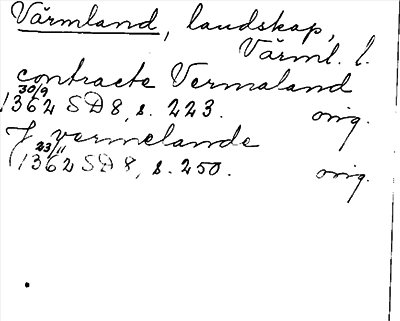 Värmland, landskap,
Värml. l.
contracte Vermaland
30/9
1362 SD 8, s. 223. orig.
J vermelande
23/11
1362 SD 8, s. 250. orig.